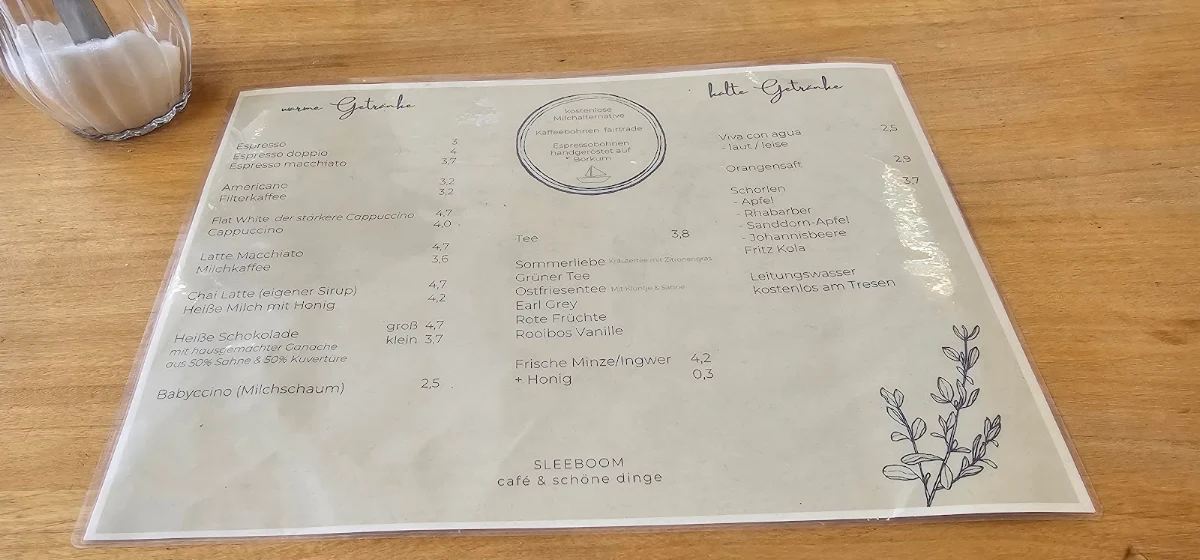 warme Getränke
Espresso 3
Espresso doppio 4
Espresso macchiato 3,7
Americano 3,2
Filterkaffee 3,2
Flat White der stärkere Cappuccino 4,7
Cappuccino 4,0
Latte Macchiato 4,7
Milchkaffee 3,6
Chai Latte (eigener Sirup) 4,7
Heiße Milch mit Honig 4,2
Heiße Schokolade groß 4,7
klein 3,7
mit hausgemachter Ganache
aus 50% Sahne & 50% Kuvertüre
Babyccino (Milchschaum) 2,5
kostenlose
Milchalternative
Kaffeebohnen fairtrade
Espressobohnen
handgeröstet auf
Borkum
Tee 3,8
Sommerliebe Kräutertee mit Zitronengras
Grüner Tee
Ostfriesentee Mit Kluntje & Sahne
Earl Grey
Rote Früchte
Rooibos Vanille
Frische Minze/Ingwer 4,2
+ Honig 0,3
kalte Getränke
Viva con agua 2,5
- laut / leise
Orangensaft 2,9
Schorlen 3,7
- Apfel
- Rhabarber
- Sanddorn-Apfel
- Johannisbeere
Fritz Kola
Leitungswasser
kostenlos am Tresen
SLEEBOOM
café & schöne dinge